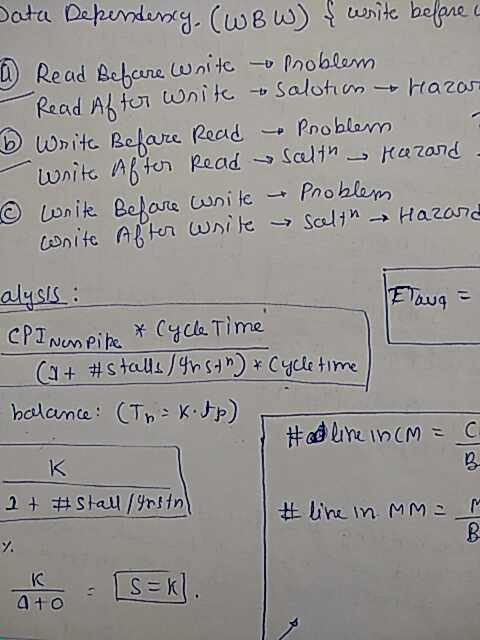 Data Dependency. (WBW) { write before
(a) Read Before Write → Problem
Read After Write → Solution → Hazar
(b) Write Before Read → Problem
Write After Read → Solⁿ → Hazard
(c) Write Before Write → Problem
Write After Write → Solⁿ → Hazard
alysis :
ETavg =
CPI NonPipe * Cycle Time
(1 + #Stalls/Instⁿ) * Cycle time
balance: (Tn = K·tp)
# line in CM = C
B
K
1 + #Stall/Instn
# line in MM = M
B
%.
K
1+0
= S = K .